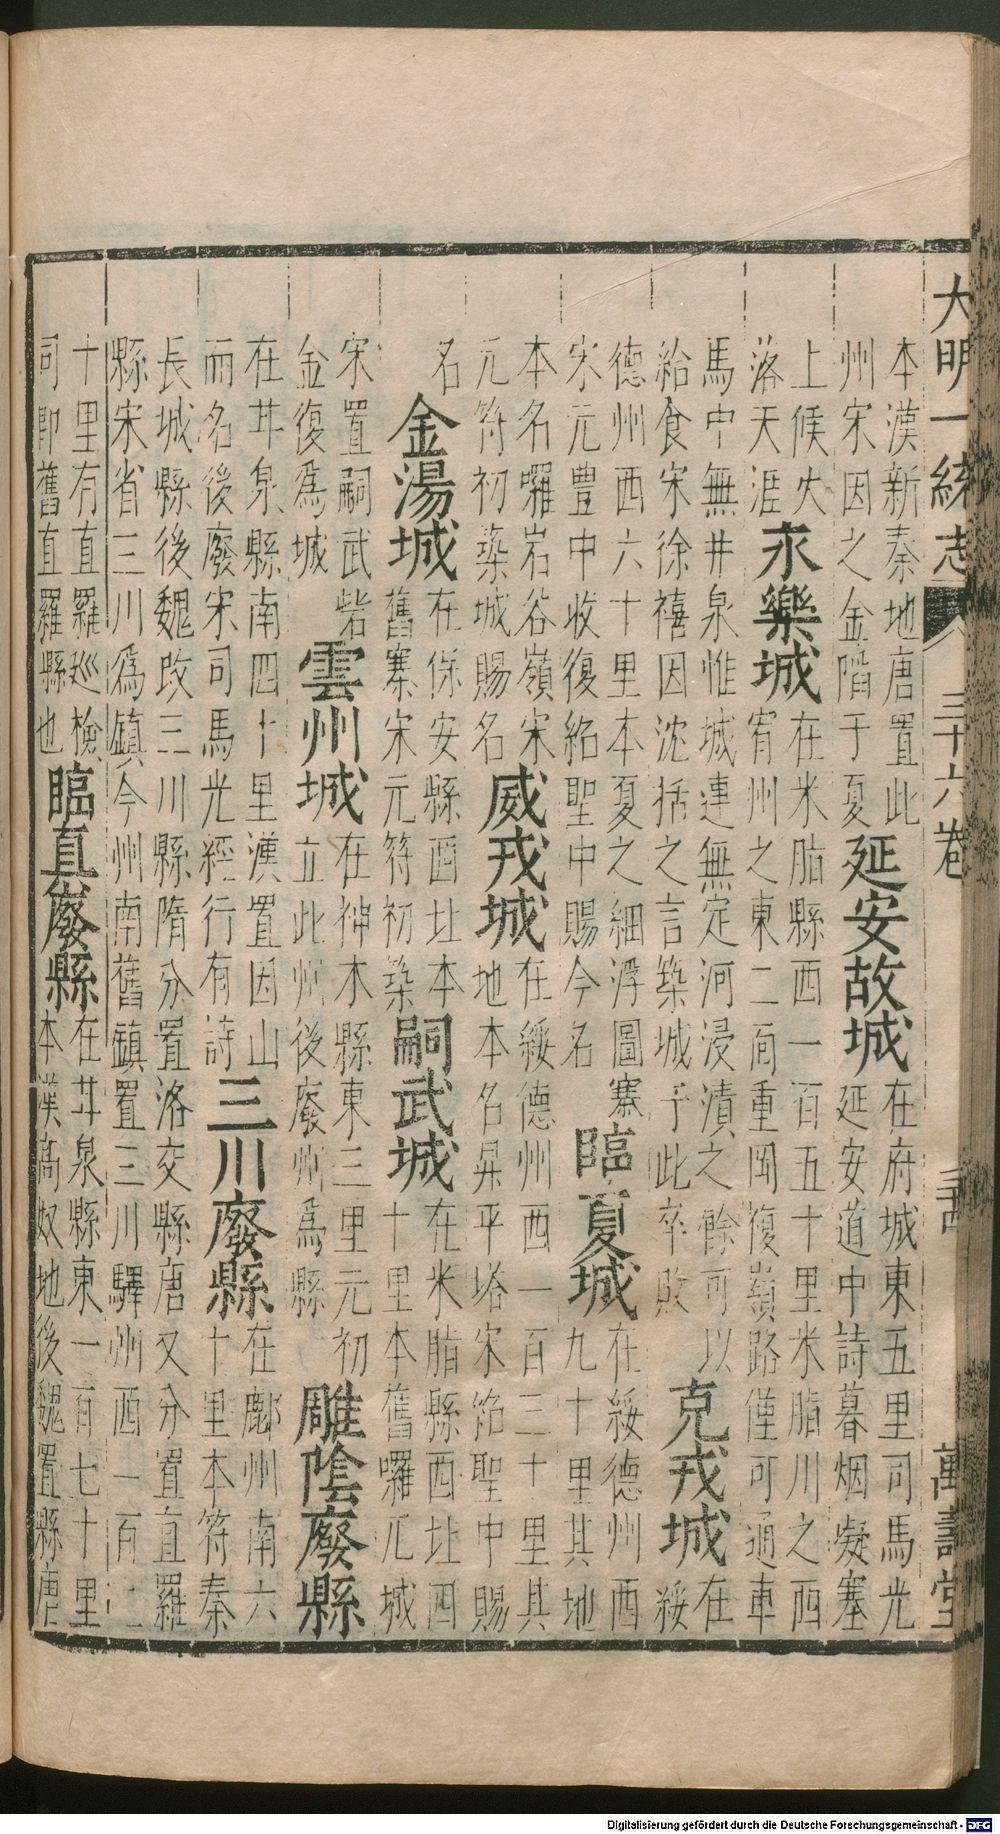 大明一統志 三十六卷 萬壽堂
本漢新秦地唐置此
州宋因之金階于夏
延安故城
在府城東五里司馬光
延安道中詩暮烟凝塞
上候火
落天涯
永樂城
在米脂縣西一百五十里米脂川之西
宥州之東二面重岡複嶺路僅可通車
馬中無井泉惟城連無定河浸漬之餘可以
給食宋徐禧因沈括之言築城于此卒敗
克戎城
在
綏
德州西六十里本夏之細浮圖寨
宋元豊中收復紹聖中賜今名
臨夏城
在綏德州西
九十里其地
本名囉岩谷嶺宋
元符初築城賜名
威戎城
在綏德州西一百三十里其
地本名昇平塔宋紹聖中賜
名
金湯城
在保安縣西北本
舊寨宋元符初築
嗣武城
在米脂縣西北四
十里本舊囉兀城
宋置嗣武砦
金復爲城
雲州城
在神木縣東三里元初
立此州後廢州爲縣
雕陰廢縣
在甘泉縣南四十里漢置因山
而名後廢宋司馬光經行有詩
三川廢縣
在鄜州南六
十里本符秦
長城縣後魏改三川縣隋分置洛交縣唐又分置直羅
縣宋省三川爲鎮今州南舊鎮置三川驛州西一百二
十里有直羅巡檢
司即舊直羅縣也
臨真廢縣
在甘泉縣東一百七十里
本漢高奴地後魏置縣唐
Digitalisierung gefördert durch die Deutsche Forschungsgemeinschaft - DFG